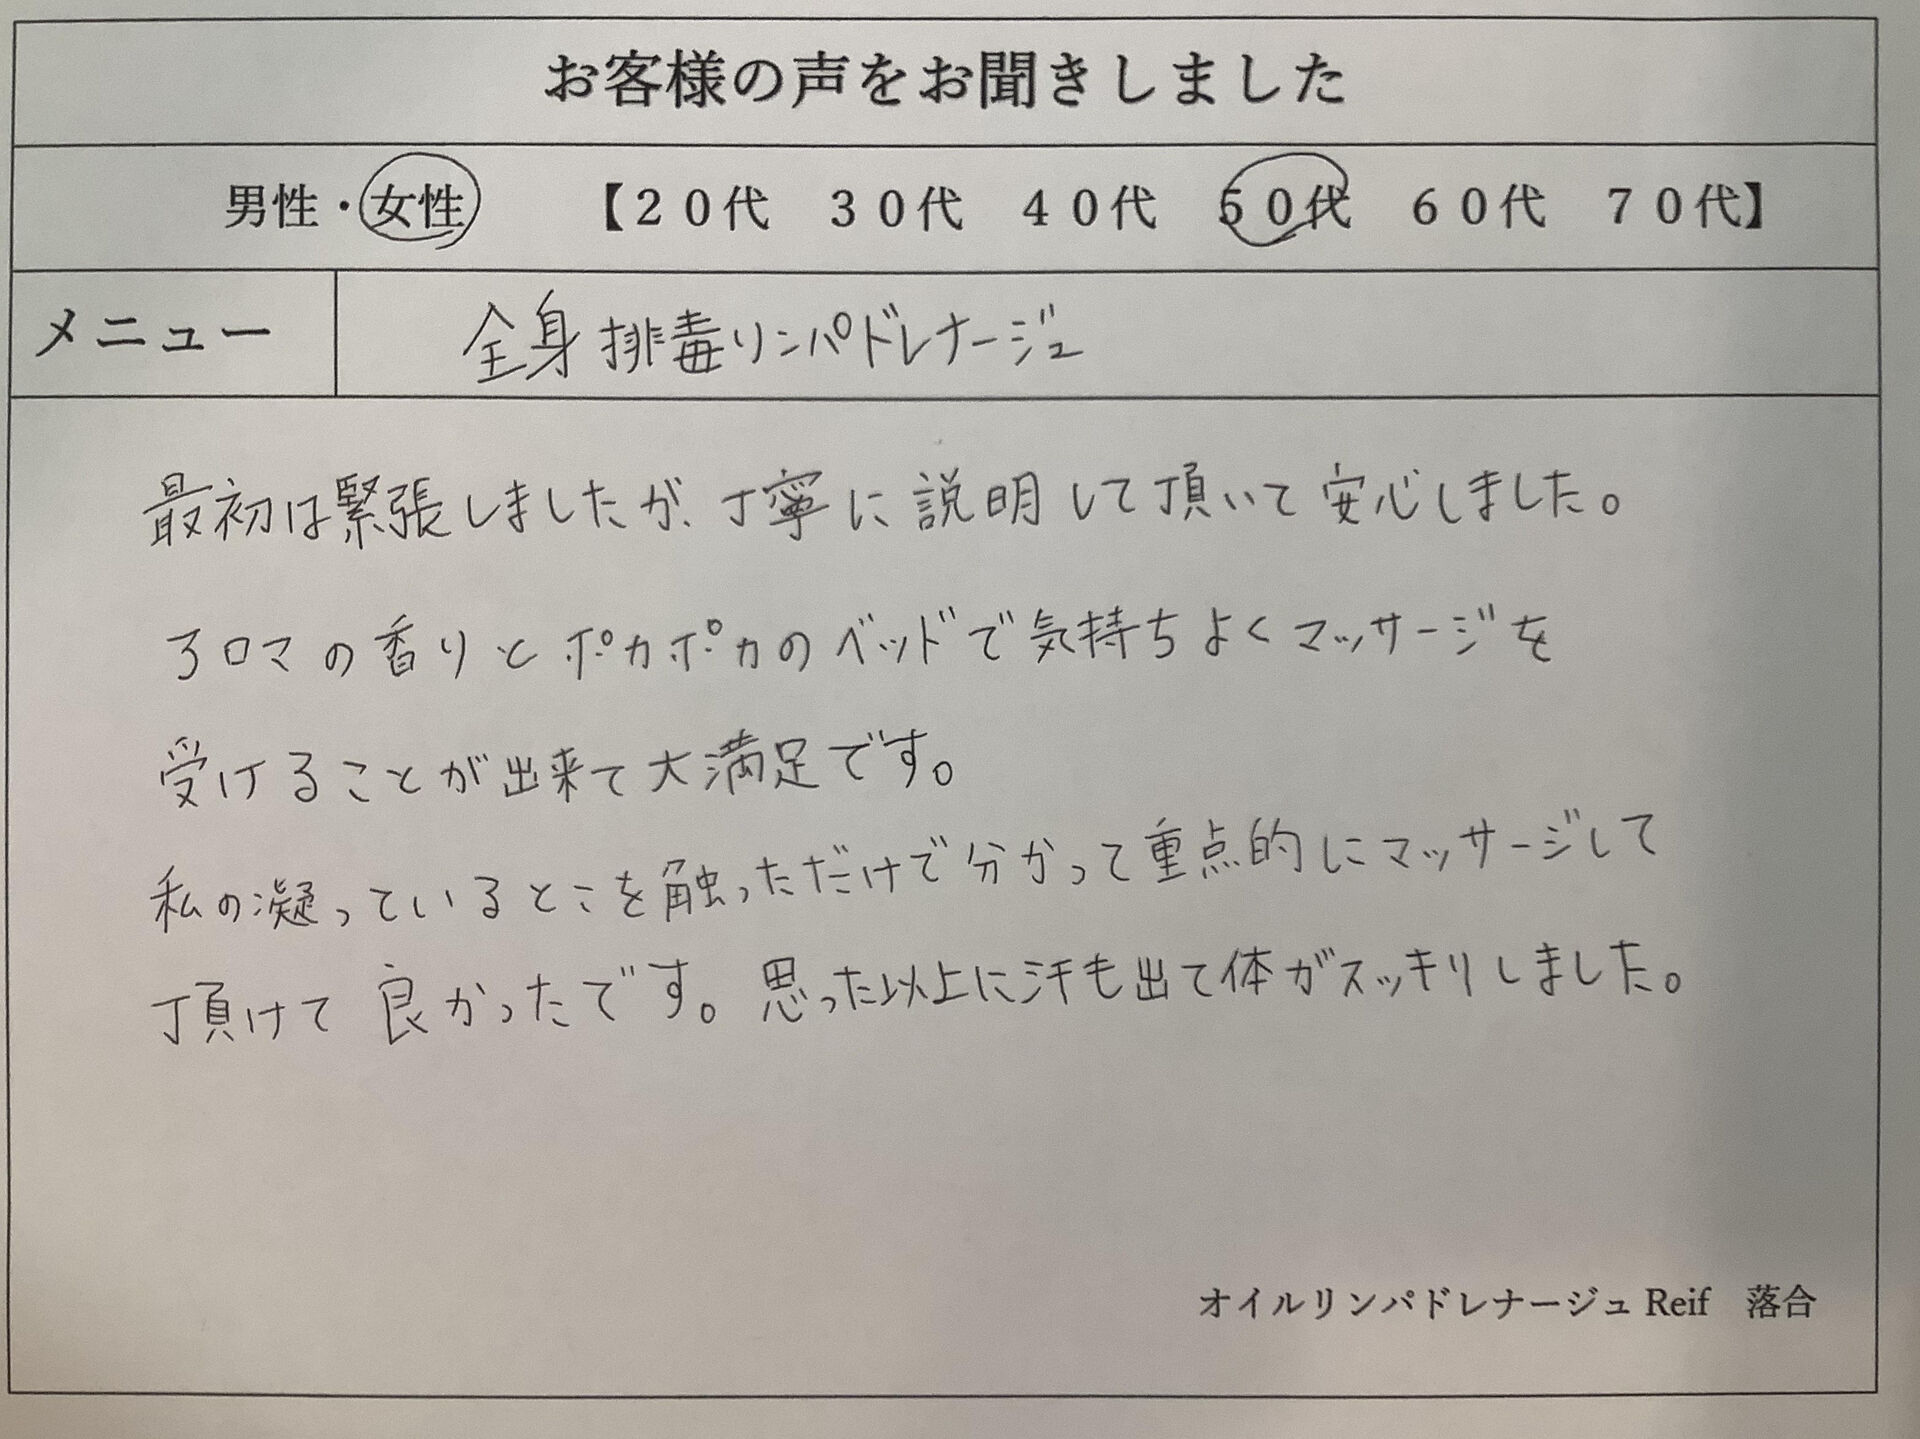 お客様の声をお聞きしました
男性・女性 【20代 30代 40代 50代 60代 70代】
メニュー 全身排毒リンパドレナージュ
最初は緊張しましたが、丁寧に説明して頂いて安心しました。
アロマの香りとポカポカのベッドで気持ちよくマッサージを
受けることが出来て大満足です。
私の凝っているとこを触っただけで分かって重点的にマッサージして
頂けて良かったです。思った以上に汗も出て体がスッキリしました。
オイルリンパドレナージュ Reif 落合